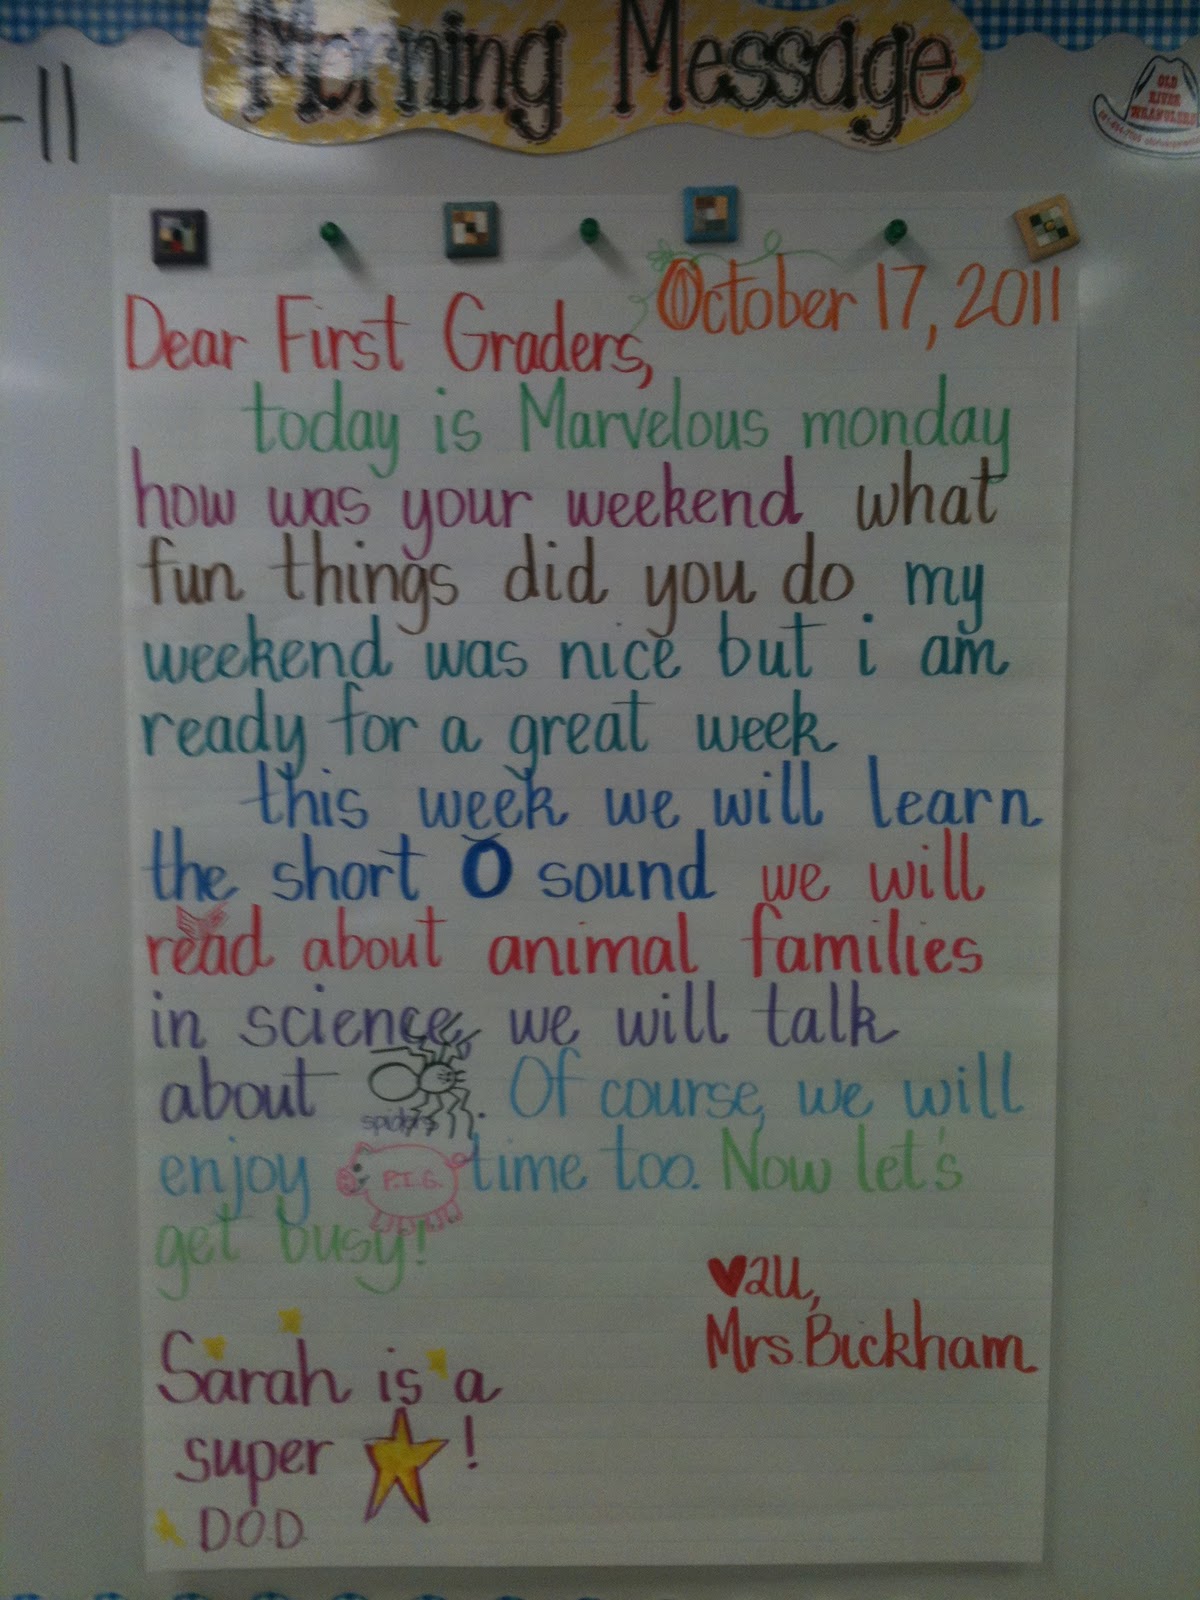 Morning Message
-11
OLD
RIVER
WRANGLERS
October 17, 2011
Dear First Graders,
today is Marvelous monday
how was your weekend what
fun things did you do my
weekend was nice but i am
ready for a great week
this week we will learn
the short Ŏ sound we will
read about animal families
in science, we will talk
about spiders. Of course, we will
enjoy P.I.G. time too. Now let's
get busy!
♥2U,
Mrs. Bickham
Sarah is a
super !
D.O.D.